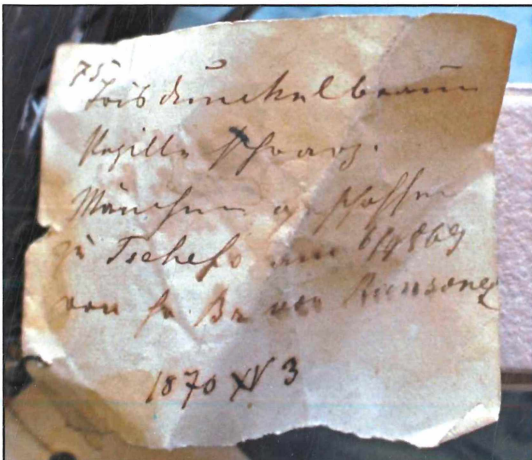 75
Iris dunckelbraun
Pupille schwarz.
Männchen geschossen
zu Tschefo am 6/4 869
von Fr. Br von Ransonet
1870 XV 3